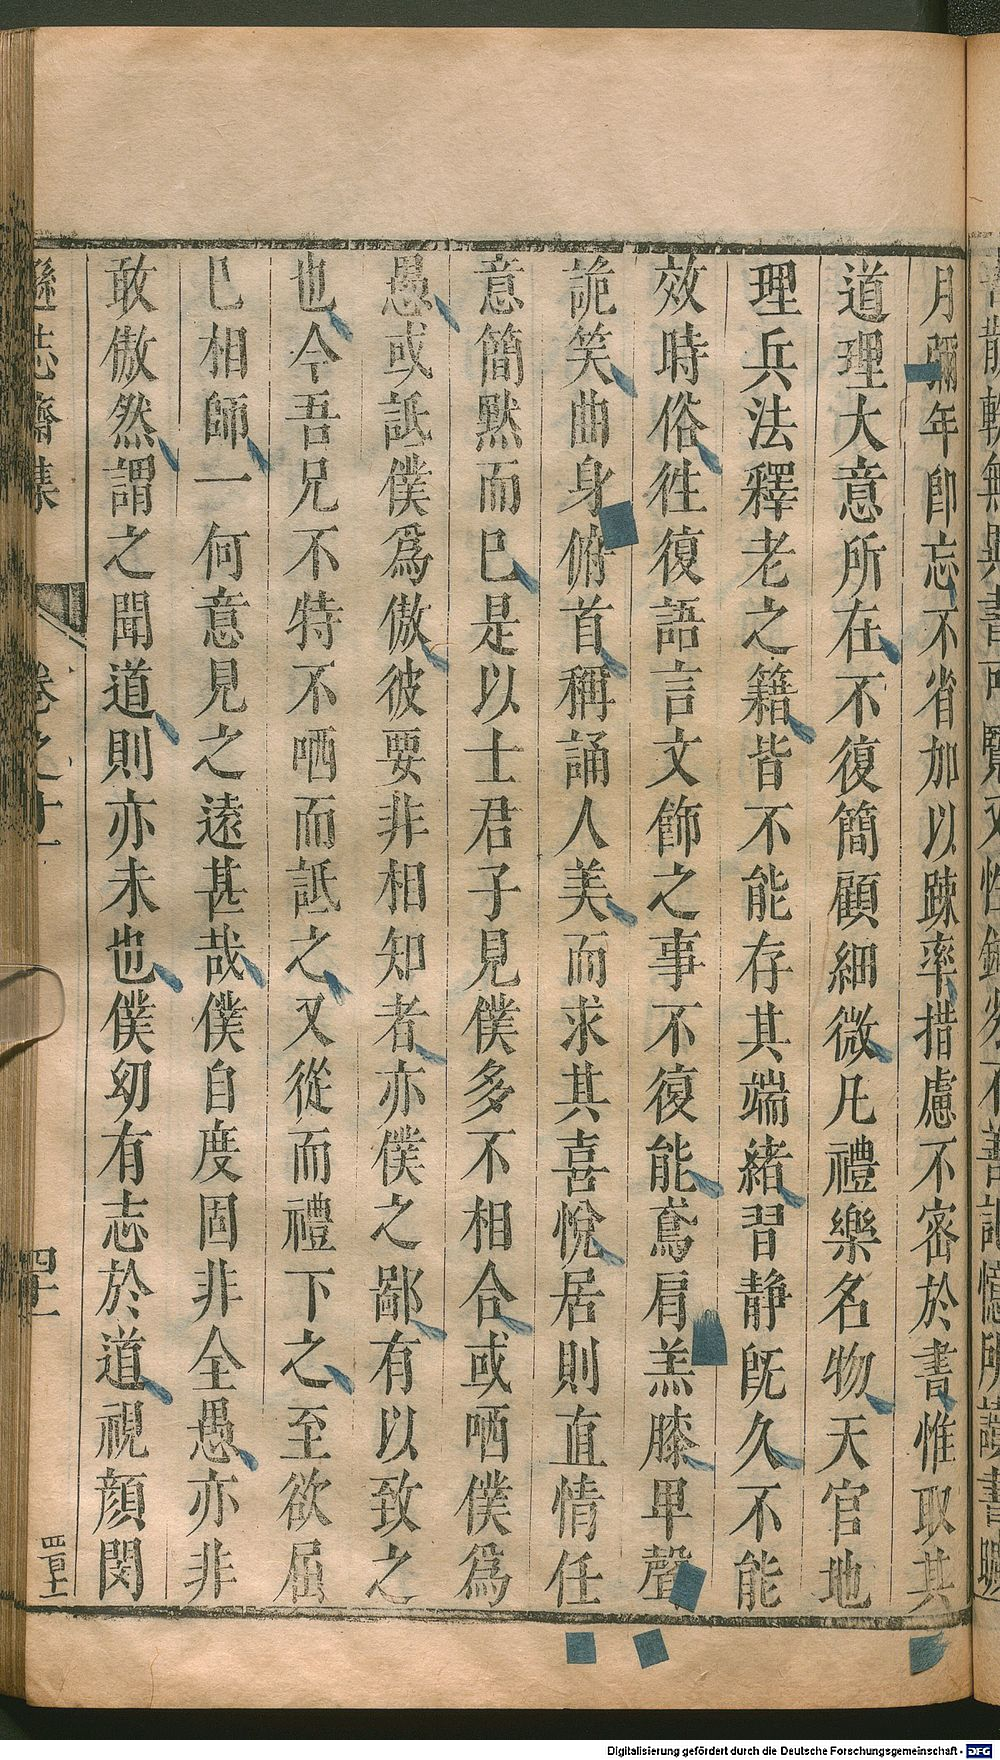 月彌年即忘不省加以踈率措慮不密於書惟取其
道理大意所在不復簡顧細微凡禮樂名物天官地
理兵法釋老之籍皆不能存其端緒習静旣久不能
效時俗徃復語言文飾之事不復能鳶肩羔膝卑聲
詭笑曲身俯首稱誦人美而求其喜悅居則直情任
意簡默而巳是以士君子見僕多不相合或哂僕爲
愚或詆僕爲傲彼要非相知者亦僕之鄙有以致之
也今吾兄不特不哂而詆之又從而禮下之至欲屈
巳相師一何意見之遠甚哉僕自度固非全愚亦非
敢傲然謂之聞道則亦未也僕幼有志於道視顔閔
遜志齋集 卷之十一 四十二
Digitalisierung gefördert durch die Deutsche Forschungsgemeinschaft - DFG